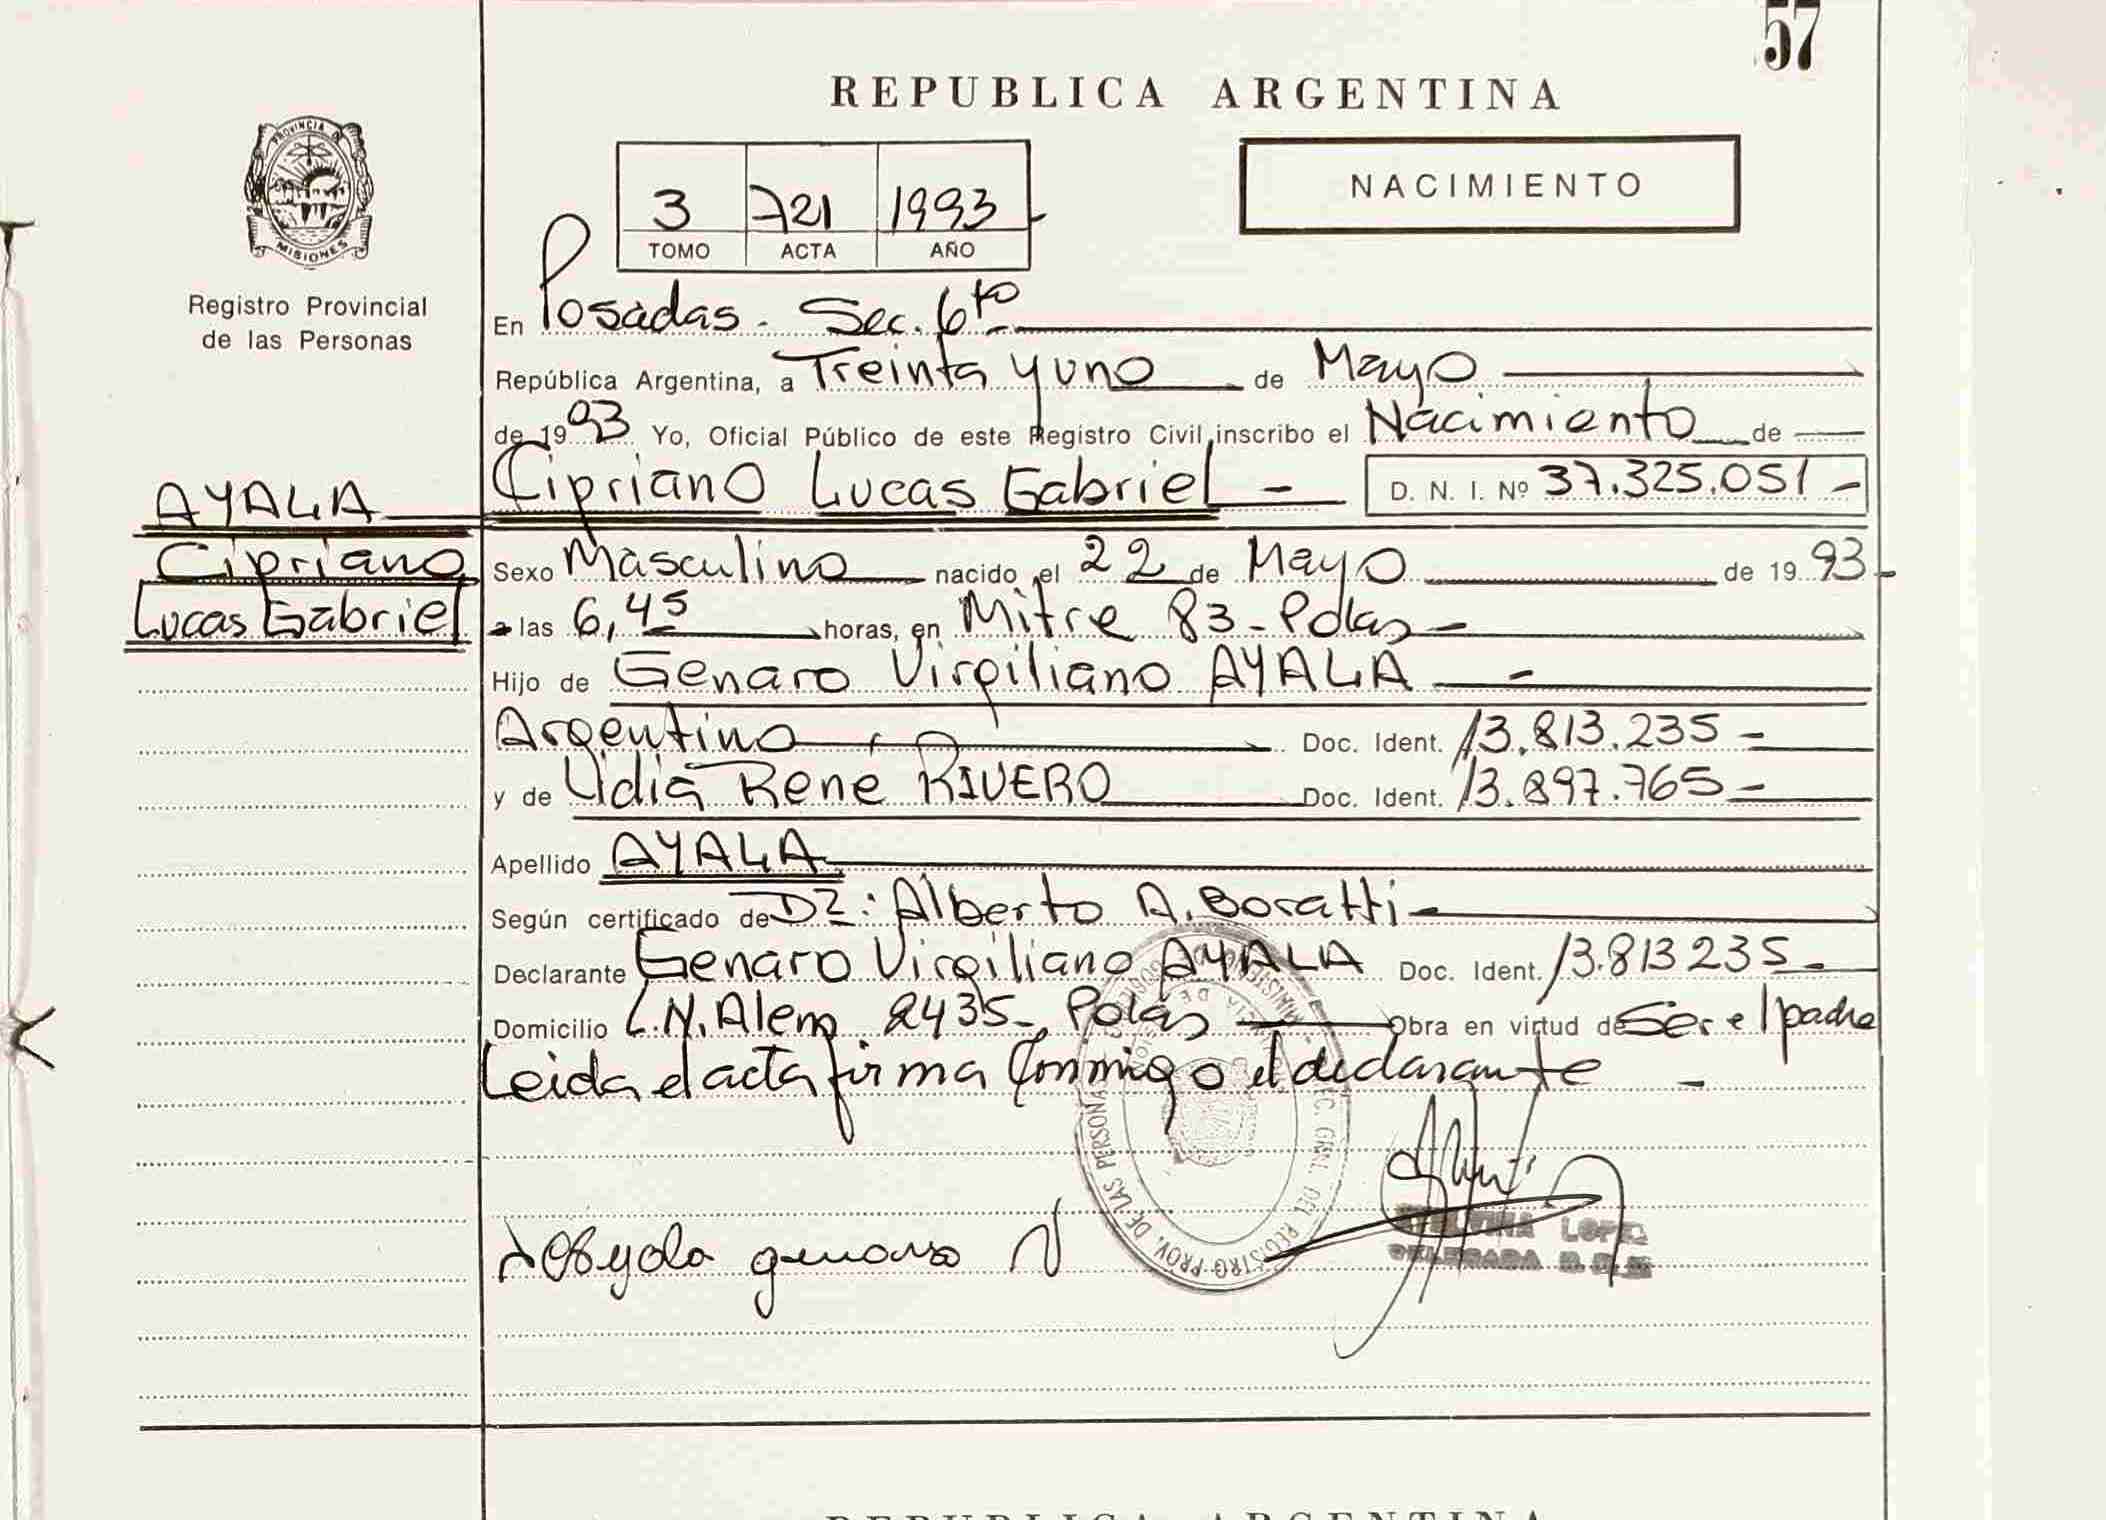 57
REPUBLICA ARGENTINA
PROVINCIA DE
MISIONES
Registro Provincial
de las Personas
NACIMIENTO
3 721 1993
TOMO ACTA AÑO
En Posadas. Sec. 6to
República Argentina, a Treinta y uno de Mayo
de 1993 Yo, Oficial Público de este Registro Civil, inscribo el Nacimiento de
AYALA
Cipriano
Lucas Gabriel
Cipriano Lucas Gabriel - D. N. I. Nº 37.325.051 -
Sexo Masculino nacido el 22 de Mayo de 1993 -
a las 6,45 horas, en Mitre 83 - Pdas -
Hijo de Genaro Virgiliano AYALA -
Argentino Doc. Ident. 13.813.235 -
y de Lidia René RIVERO Doc. Ident. 13.897.765 -
Apellido AYALA
Según certificado de Dr: Alberto A. Boratti -
Declarante Genaro Virgiliano AYALA Doc. Ident. 13.813235 -
Domicilio L.N. Alem 2435 -, Pdas Obra en virtud de Ser el padre
Leida el acta firma Conmigo el declarante -
DE LAS PERSONAS
REGISTRO PROV.
GRAL. DEL
LOPEZ
DELEGADA
REPUBLICA ARGENTINA